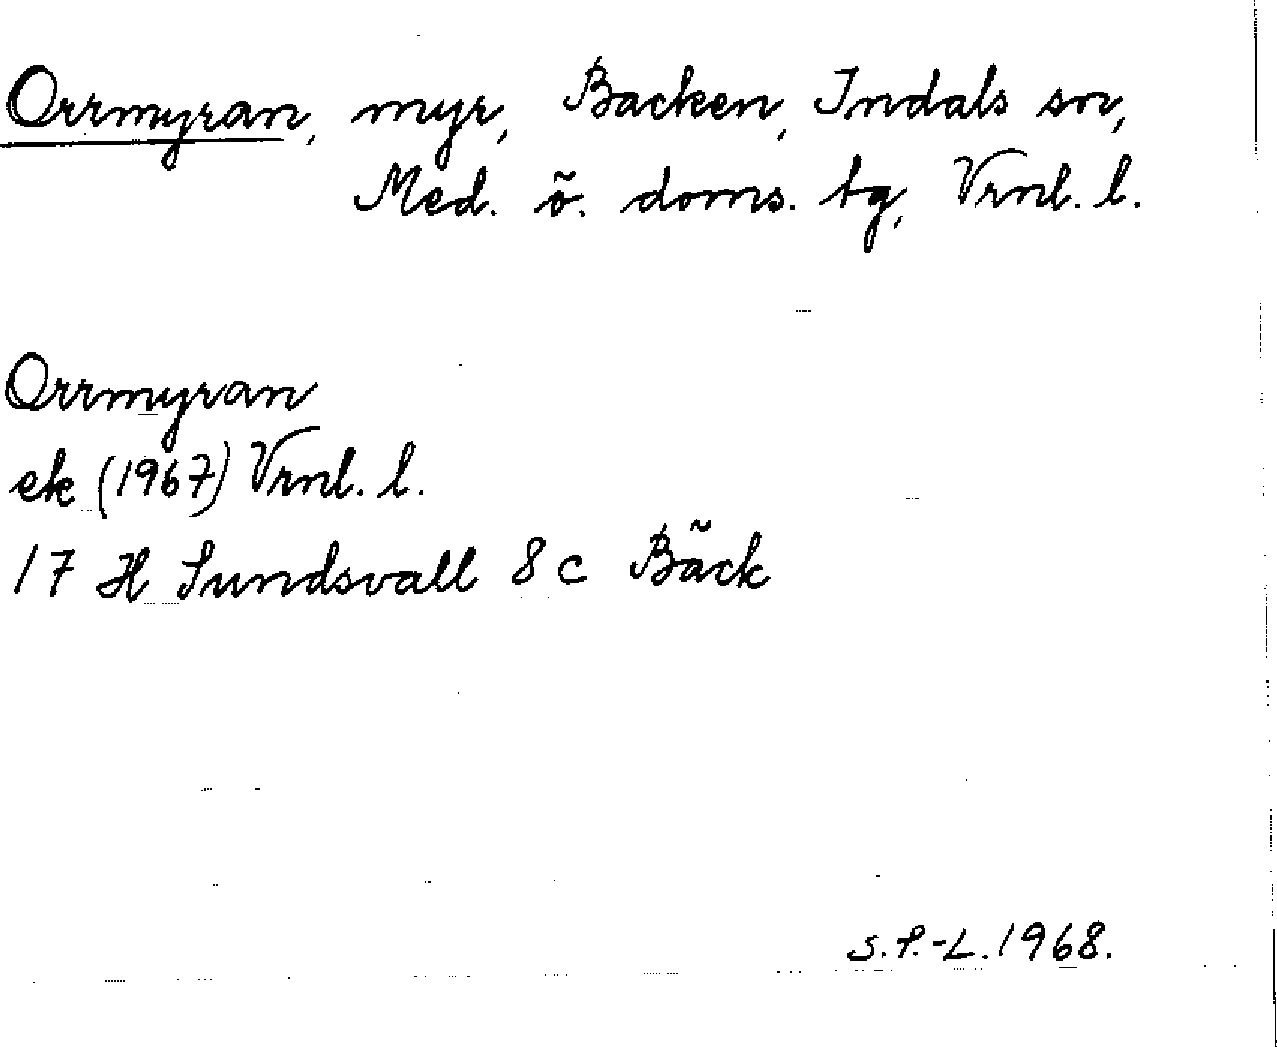 Orrmyran, myr, Backen, Indals sn,
Med. ö. doms. tg, Vrnl. l.
Orrmyran
ek (1967) Vrnl. l.
17 H Sundsvall 8 c Bäck
S.P.-L. 1968.